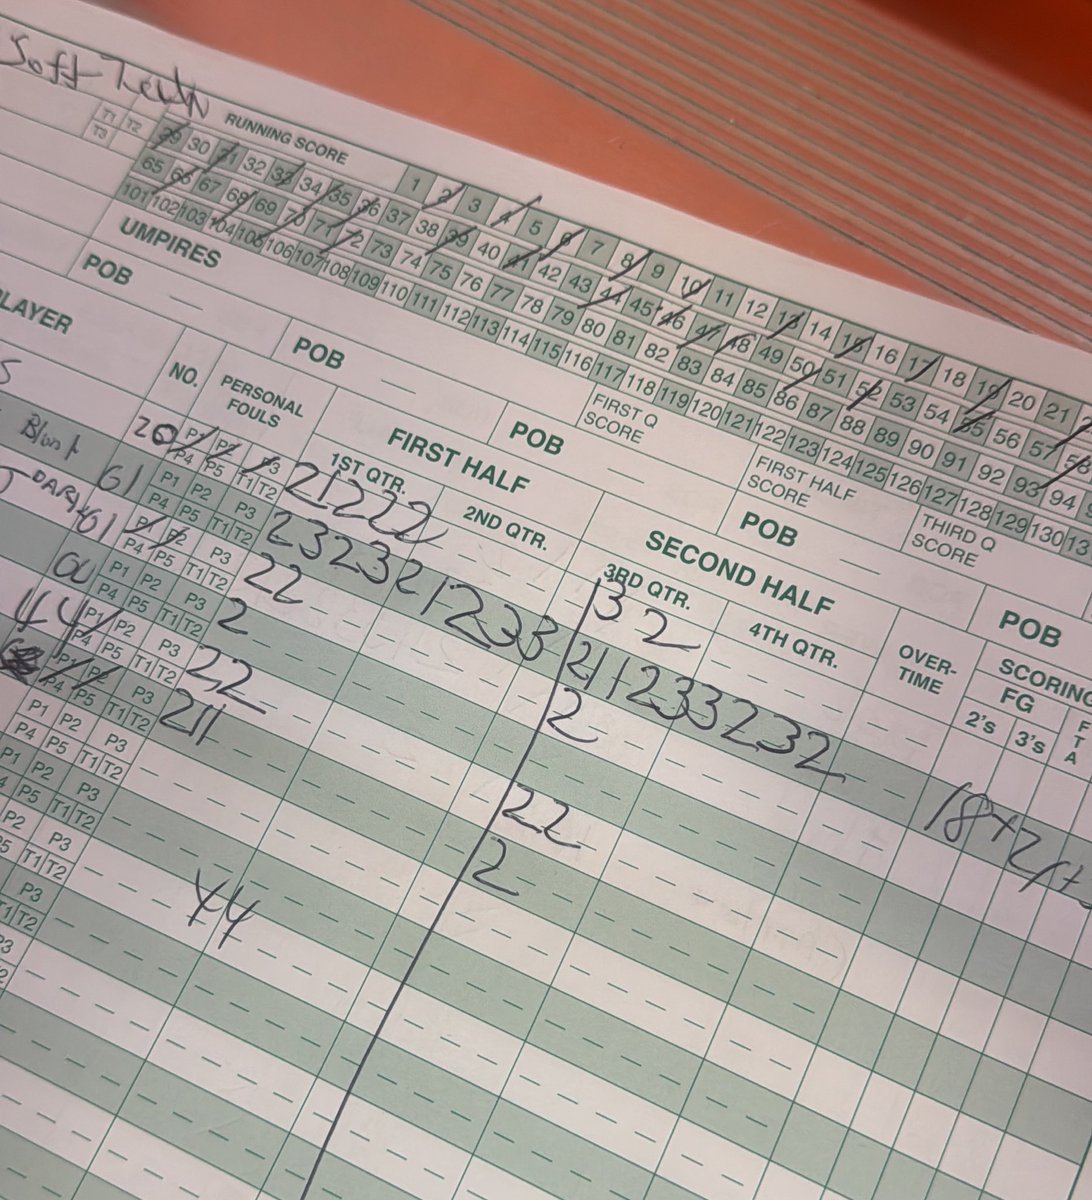 Soft Tech
T1 T2 RUNNING SCORE 1 2 3 4 5 6 7 8 9 10 11 12 13 14 15 16 17 18 19 20 21
T3 29 30 31 32 33 34 35 36 37 38 39 40 41 42 43 44 45 46 47 48 49 50 51 52 53 54 55 56 57 58
65 66 67 68 69 70 71 72 73 74 75 76 77 78 79 80 81 82 83 84 85 86 87 88 89 90 91 92 93 94
101 102 103 104 105 106 107 108 109 110 111 112 113 114 115 116 117 118 119 120 121 122 123 124 125 126 127 128 129 130
UMPIRES FIRST Q SCORE FIRST HALF SCORE THIRD Q SCORE
POB POB POB POB POB
LAYER NO. PERSONAL FOULS FIRST HALF SECOND HALF OVER-TIME SCORING
1ST QTR. 2ND QTR. 3RD QTR. 4TH QTR. FG
2's 3's FTA
20 P1 P2 P3 21222 32
P4 P5 T1 T2
Blunt 61 P1 P2 P3 232321233 211233232 18+2
P4 P5 T1 T2
DARY 61 P1 P2 P3 22 2
P4 P5 T1 T2
00 P1 P2 P3 2
P4 P5 T1 T2
44 P1 P2 P3 22 22
P4 P5 T1 T2
P1 P2 P3 211 2
P4 P5 T1 T2
P1 P2 P3
P4 P5 T1 T2
P1 P2 P3
P5 T1 T2
P2 P3 44
P5 T1 T2
P3
T1 T2
P3